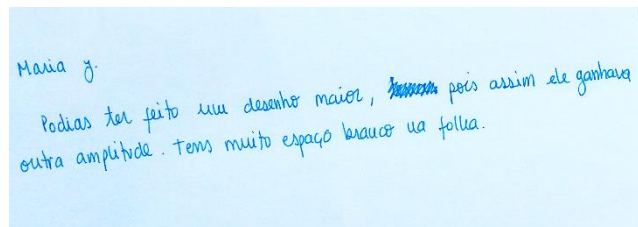 Maria y.
Podias ter feito um desenho maior, pois assim ele ganhava
outra amplitude. Tens muito espaço branco na folha.